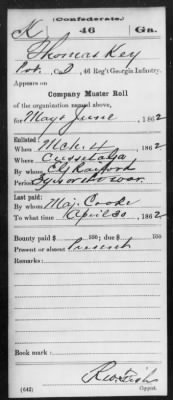 (Confederate.)
K 46 Ga.
Thomas Key
Pvt., Co. D, 46 Reg't Georgia Infantry.
Appears on
Company Muster Roll
of the organization named above,
for May & June, 1862
Enlisted:
When Mch. 4, 1862
Where Cusseta Ga
By whom
Period 3 yrs or the war
Last paid:
By whom Maj. Cooke
To what time April 30, 1862
Bounty paid $ ; due $
Present or absent Present
Remarks:
Book mark:
(642) Copyist.